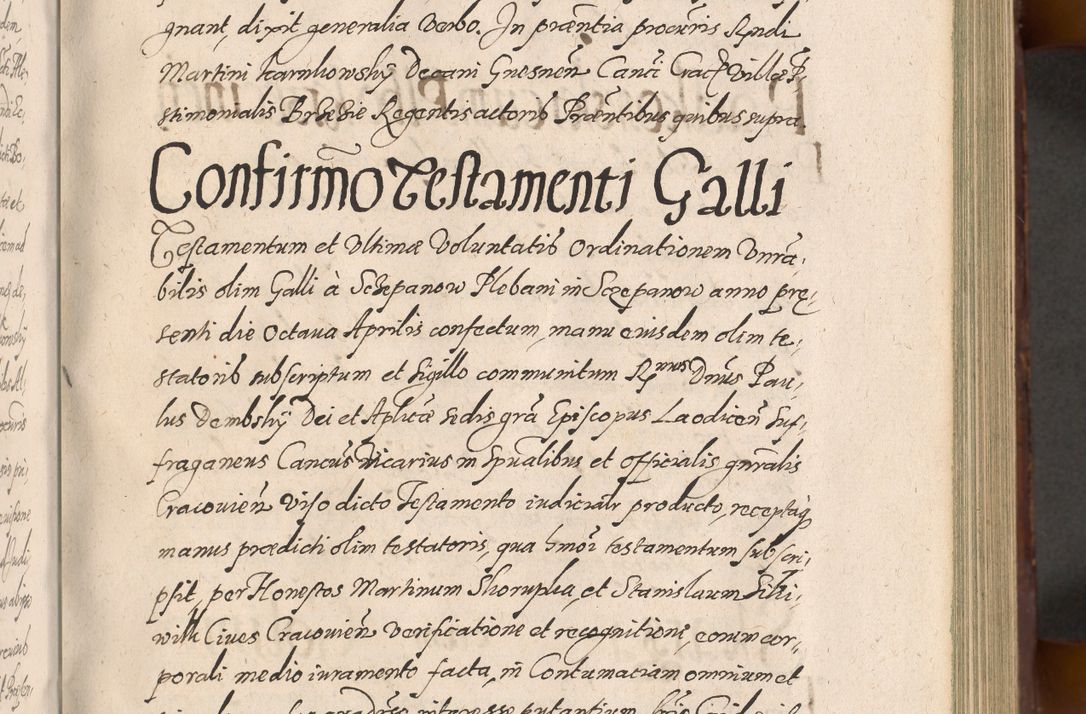 gnant, dixit generalia verbo. In præntia procuris Rndi
Martini Karnkowskÿ Decani Gnesnen̄ Canci Crac
stimonialis Brzezie Regentis actoris Præntibus quibus supra
Confirmo Testamenti Galli
Testamentum et Vltimæ Voluntatis Ordinationem Vnrā,
bilis olim Galli à Sczepanow Plebani in Sczepanow anno præ,
senti die Octaua Aprilis confectum, manu eiusdem olim te,
statoris subscriptum et sigillo communitum Rmus Dnus Pau,
lus Dembskÿ Dei et Aplicæ sedis grā Episcopus Laodicen̄ Suf,
fraganeus Cancus Vicarius in Spualibus et officialis gnralis
Cracouien̄ Viso dicto Testamento iudicialr producto, receptaq
manus prædicti olim testatoris, qua hmoi testamentum subscri,
psit, per Honestos Martinum Skorupka, et Stanislaum
Ciues Cracouien̄ verificatione et recognitioni, eorum cor,
porali medio iuramento facta, in Contumaciam omnium et
interesse putantium